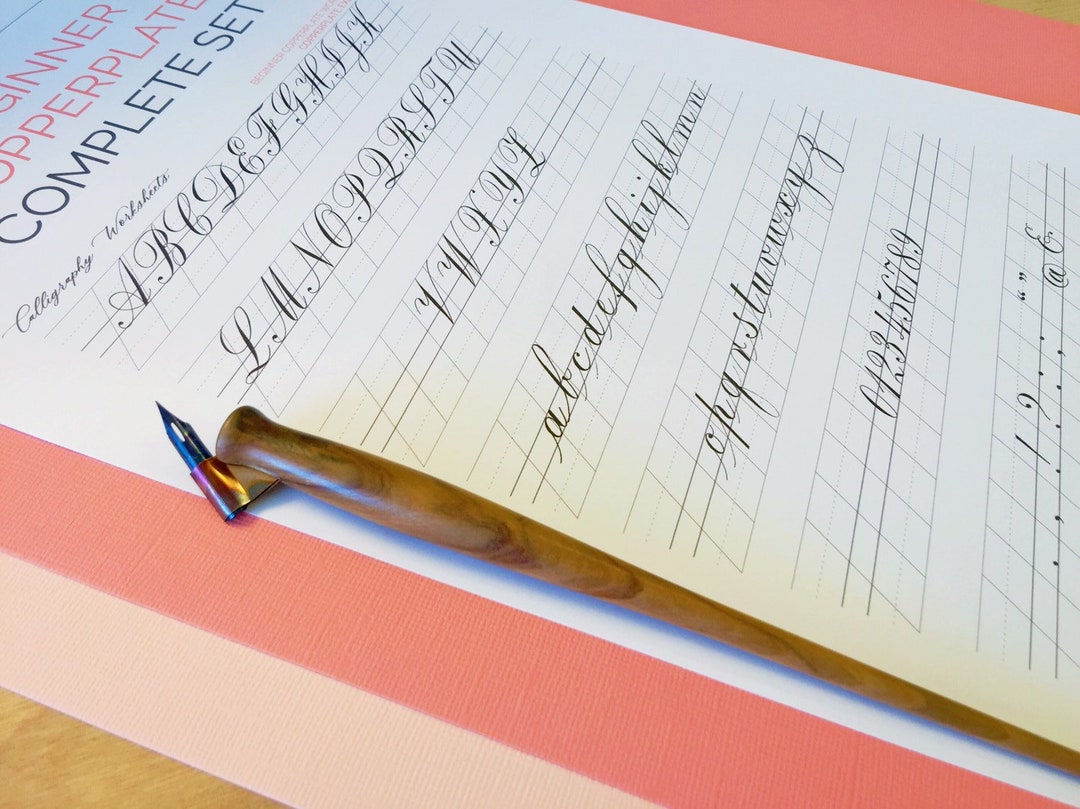 GINNER
OPPERPLATE
COMPLETE SET
BEGINNER COPPERPLATE
COPPERPLATE
Calligraphy Worksheets
ABCDEFGHIJK
LMNOPQRSTU
VWXYZ
abcdefghijklmn
opqrstuvwxyz
0123456789
! ? “ ” @ &